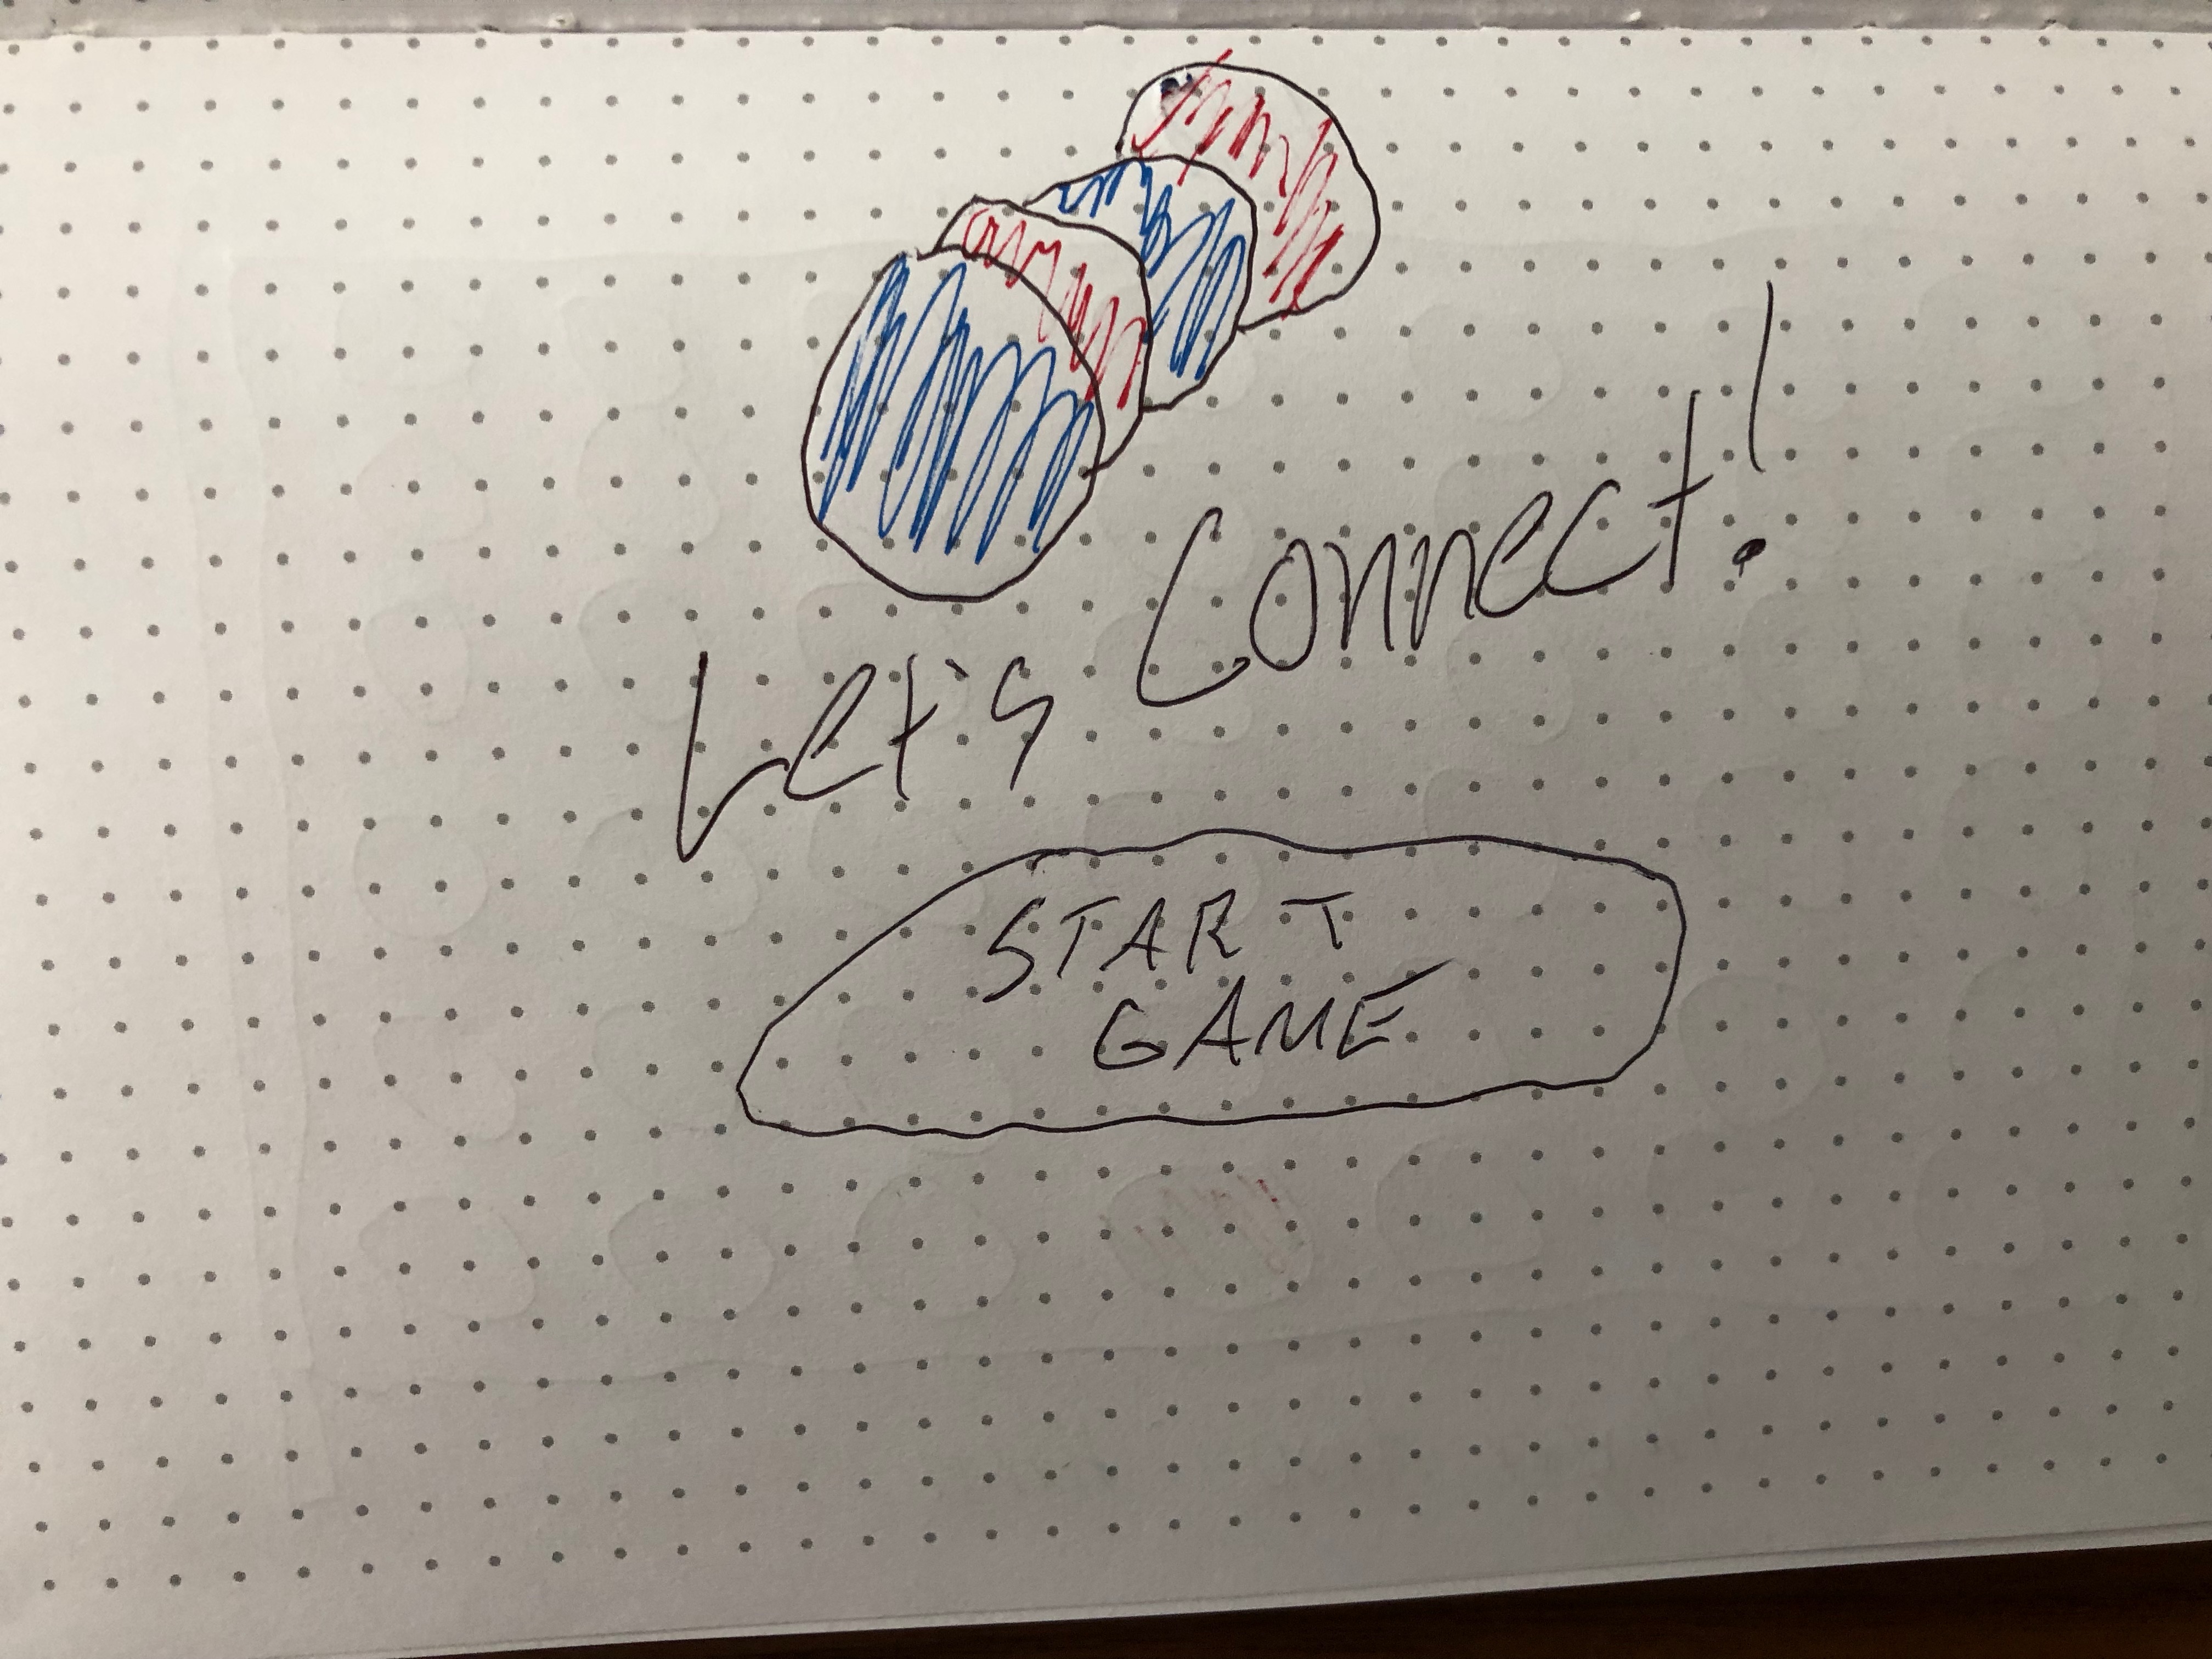 Let's Connect!
START
GAME